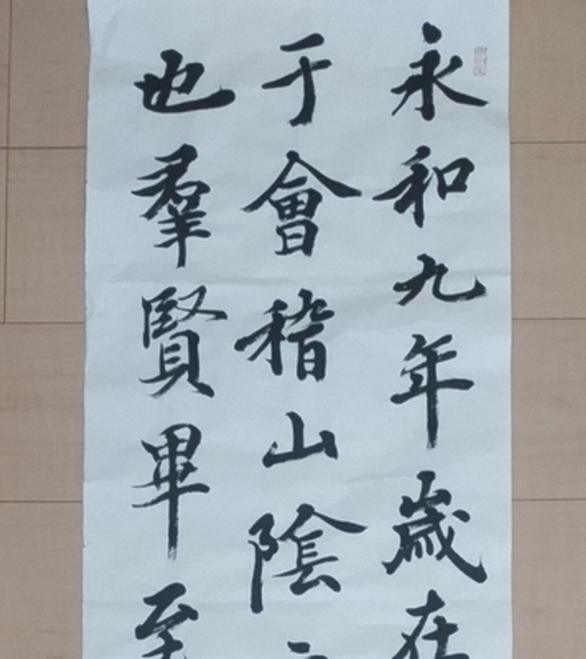 永和九年歲在
于會稽山陰
也羣賢畢至